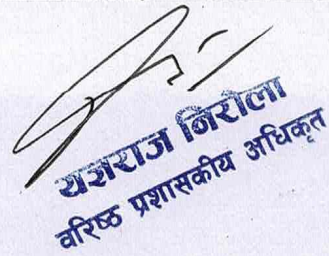 यज्ञराज निरौला
वरिष्ठ प्रशासकीय अधिकृत